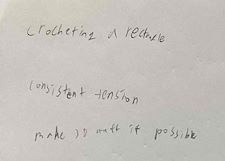 crocheting a rectangle
consistent tension
make it matt if possible